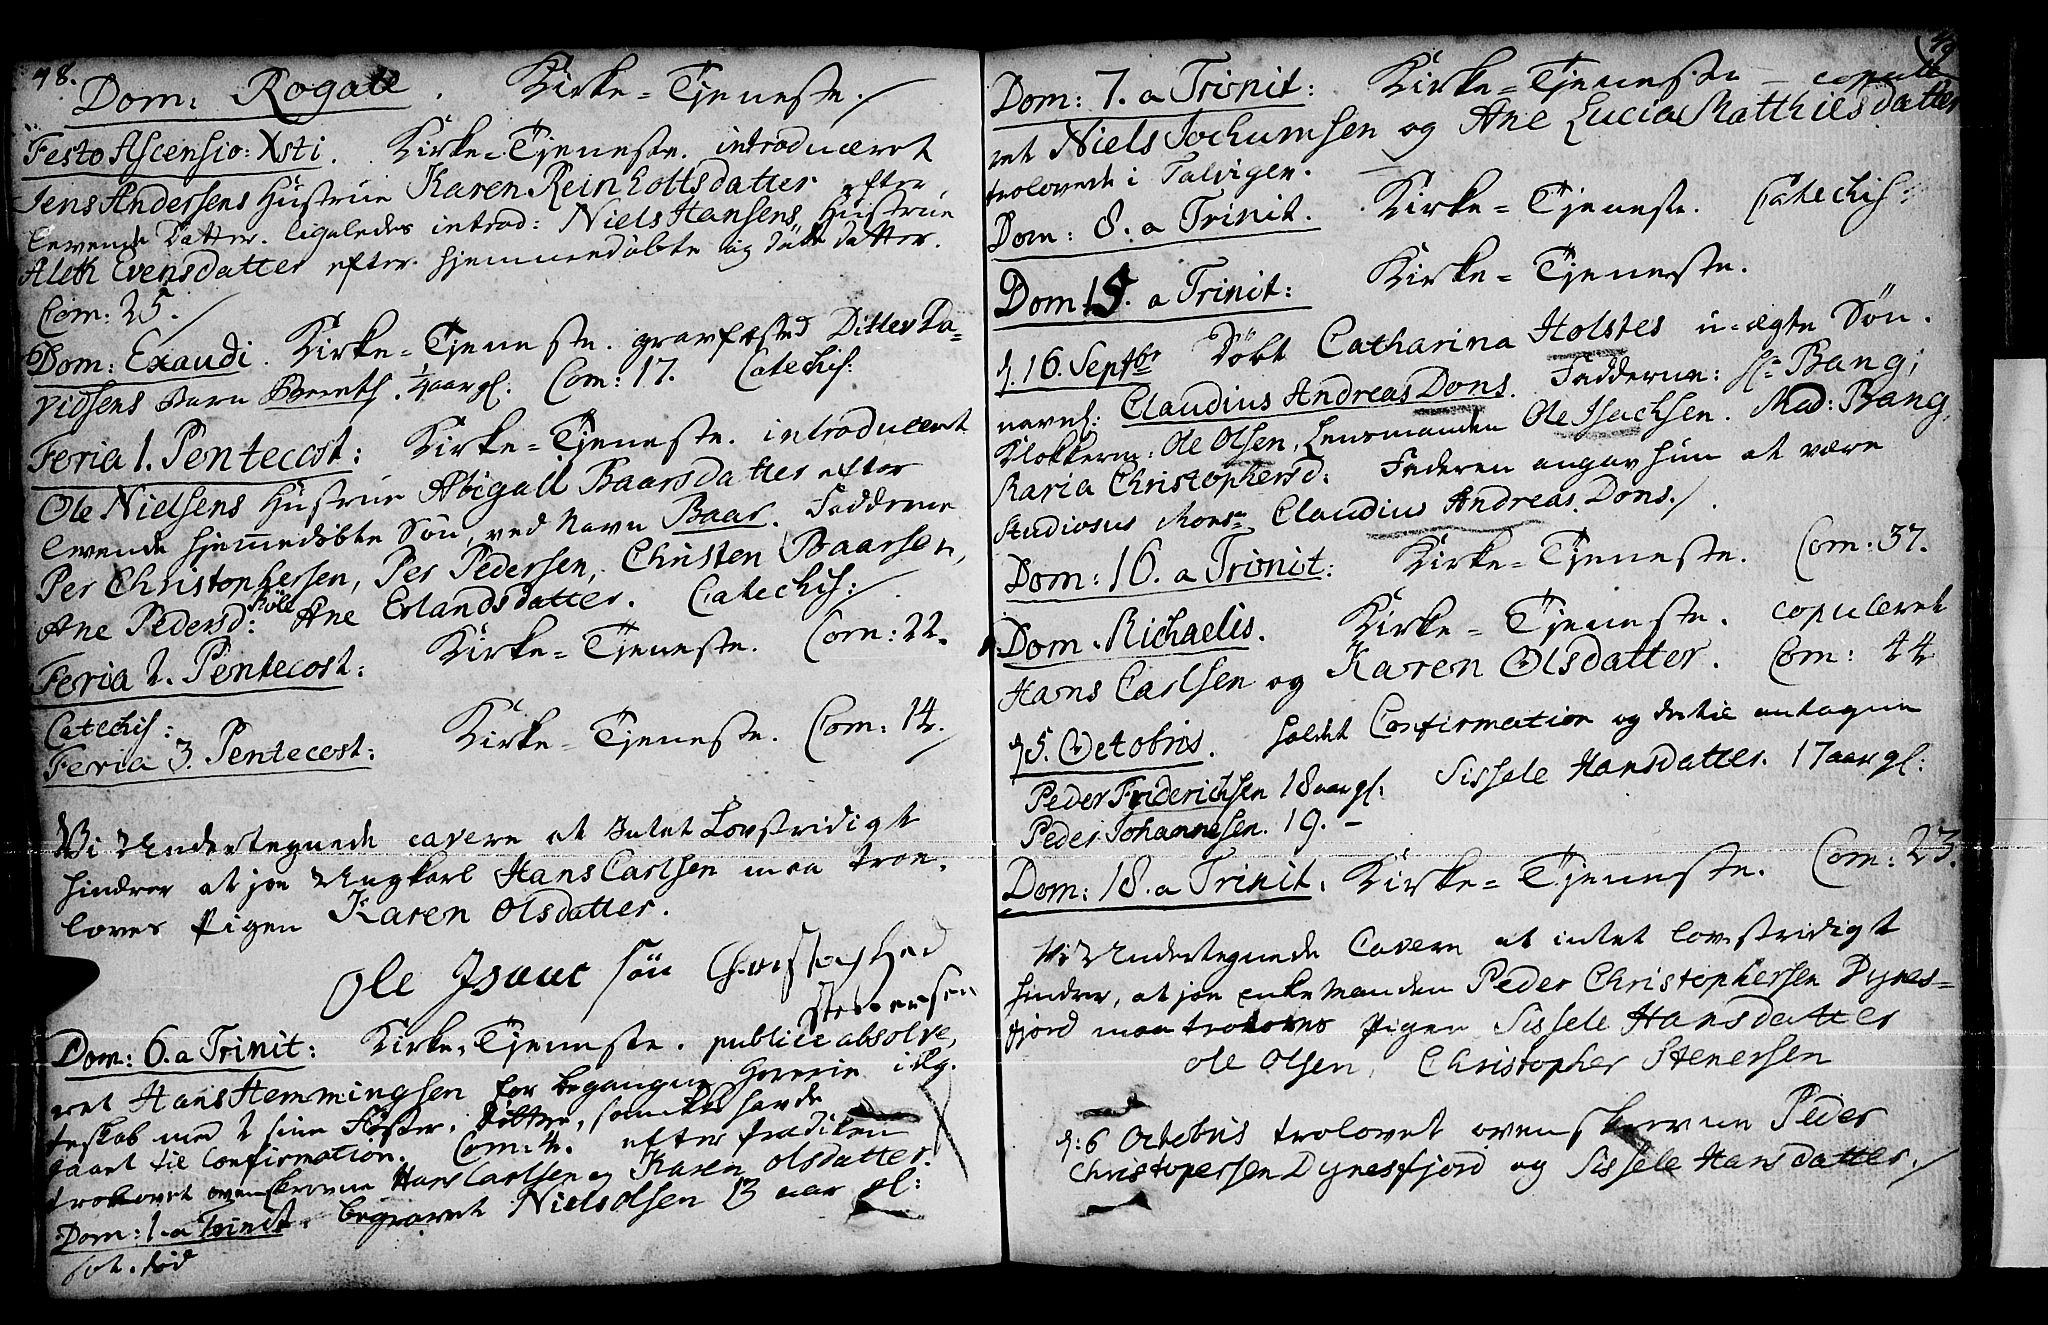 48.
Dom: Rogate. Kirke-Tjeneste./
Festo Ascensio: Xsti. Kirke-Tjeneste. introduceret
Jens Andersens Hustrue Karen Reinholtsdatter efter
levende Datter. ligeledes introd: Niels Hansens Hustrue
Aleth Evensdatter efter hjemmedöbte og döde datter.
Com: 25./
Dom: Exaudi. Kirke-Tjeneste. grafæsted Ditlev Da-
vidsens Barn Bereth. 1/4 aar gl: Com: 17. Catechis:
Feria 1. Pentecost: Kirke-Tjeneste. introduceret
Ole Nielsens Hustrue Abigall Baarsdatter efter
levende hjemedöbte Sön, ved Navn Baar. Fadderne
Per Christophersen, Per Pedersen, Christen Baarsen,
Ane Pedersd: Ane Erlandsdatter. Catechis:/
Feria 2. Pentecost: Kirke-Tjeneste. Com: 22.
Catechis:
Feria 3. Pentecost: Kirke-Tjeneste. Com: 14./
Vi Undertegnede cavere at Intet Lovstridigt
hindrer at jo Ungkarl Hans Carlsen maa troe-
loves Pigen Karen Olsdatter.
Ole Isaac sön
Stenersen
Dom: 6. a Trinit: Kirke-Tjeneste. publice absolve-
ret Hans Hemmingsen for begangne Horerie i Æg-
teskab med sine Söster
gaaet til Confirmation. Com: 4. efter Prædiken
trolovet ovenskrevne Hans Carlsen og Karen Olsdatter.
Dom: 1. a Trinit. begravet Niels Olsen 13 aar gl:
död
49
Dom: 7. a Trinit: Kirke-Tjeneste - copule
ret Niels Jochumsen og Ane Lucia Matthiesdatter
trolovede i Talvigen.
Dom: 8. a Trinit. Kirke-Tjeneste. Catechis:
Dom 15. a Trinit: Kirke-Tjeneste.
d. 16. Septbr Döbt Catharina Holstes u-ægte Sön.
navnl: Claudius Andreas Dons. Fadderne: Hr Bang,
Klokkeren: Ole Olsen, Lensmanden Ole Isachsen. Mad: Bang,
Maria Christophersd: Faderen angav hun at være
Studiosus Monsr Claudius Andreas Dons./.
Dom: 16. a Trinit: Kirke-Tjeneste. Com: 37.
Dom. Michaelis. Kirke-Tjeneste. copuleret
Hans Carlsen og Karen Olsdatter. Com: 44
d 5. Octobris. holdt Confirmation og dertil antagne
Peder Friderichsen 18 aar gl: Sissele Hansdatter. 17 aar gl:
Peder Johannesen. 19. -
Dom: 18. a Trinit. Kirke-Tjeneste. Com: 23.
Vi Undertegnede Cavere at intet lovstridigt
hindrer, at jo Enkemanden Peder Christophersen Dynes-
fjord maa troloves Pigen Sissele Hansdatter
Ole Olsen, Christopher Stenersen
d: 6 Octobris trolovet ovenskrevne Peder
Christopersen Dynesfjord og Sissele Hansdatter./